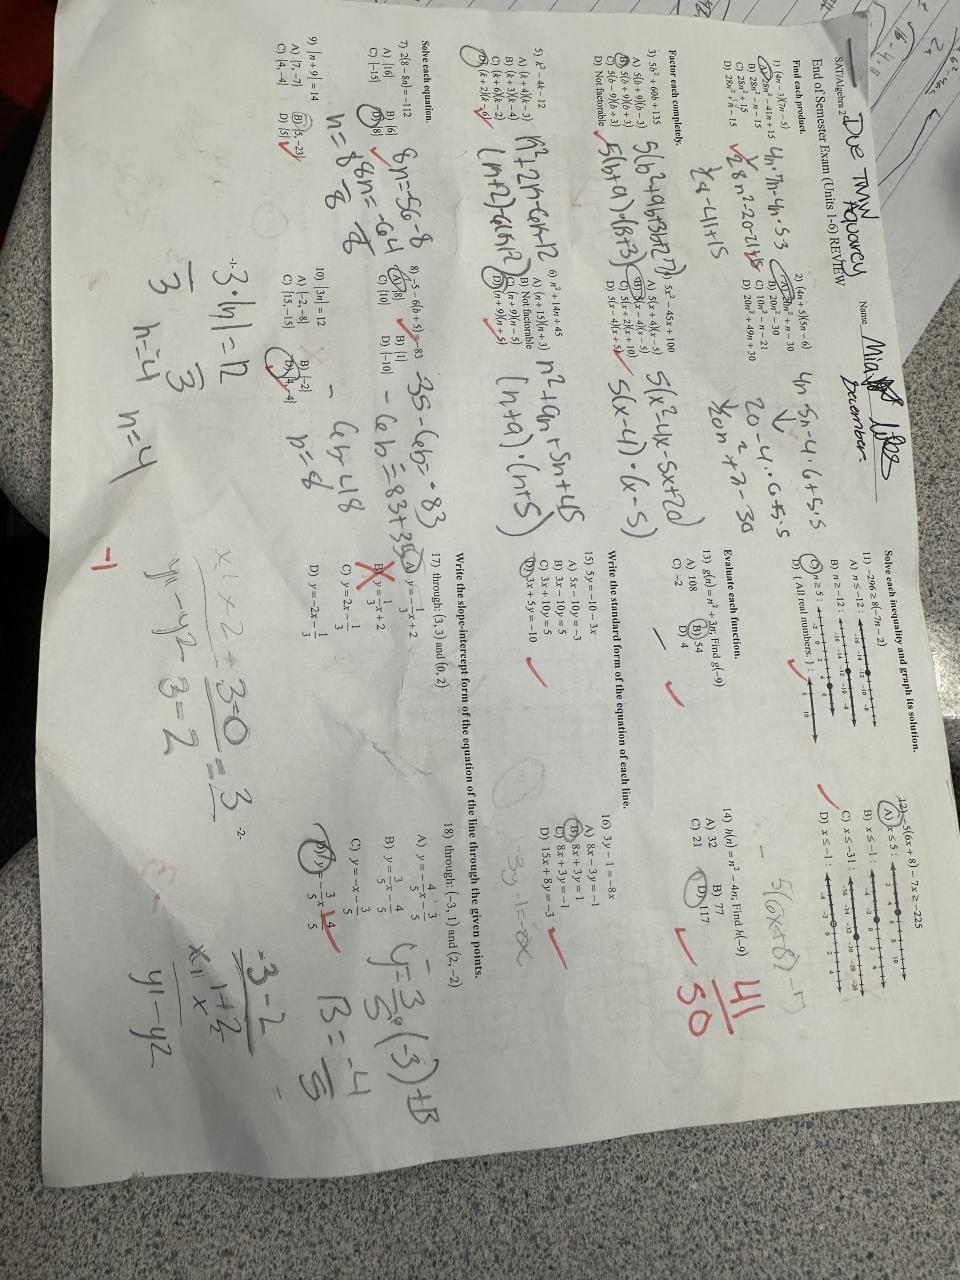 SAT/Algebra 2
Due TMW
Aquarey
Name
Mia
December.
End of Semester Exam (Units 1-6) REVIEW
Find each product.
1) (4n − 3)(7n − 5)
A) 28n² − 41n + 15
B) 28n² − n − 15
C) 28n² + 15
D) 28n² + n − 15
2) (4n + 5)(5n − 6)
A) 20n² + n − 30
B) 20n² − 30
C) 10n² − n − 21
D) 20n² + 49n + 30
Factor each completely.
3) 5b² + 60b + 135
A) 5(b + 9)(b − 3)
B) 5(b + 9)(b + 3)
C) 5(b − 9)(b + 3)
D) Not factorable
5(b²+9b+3b+27)
5(b+9)·(B+3)
4) 5x² − 45x + 100
A) 5(x + 4)(x − 5)
B) 5(x − 4)(x − 5)
C) 5(x + 2)(x + 10)
D) 5(x − 4)(x + 5)
5(x²-4x-5x+20)
5(x-4)·(x-5)
5) k² − 4k − 12
A) (k + 4)(k − 3)
B) (k + 3)(k − 4)
C) (k + 6)(k − 2)
D) (k + 2)(k − 6)
6) n² + 14n + 45
A) (n + 15)(n + 3)
B) Not factorable
C) (n + 9)(n − 5)
D) (n + 9)(n + 5)
n²+9n+5n+45
(n+9)·(n+5)
Solve each equation.
7) 2(8 − 8n) = −112
A) {16}
B) {6}
C) {−15}
D) {8}
8n=-56-8
n=8
8) −5 − 6(b + 5) = −83
A) {8}
B) {1}
C) {10}
D) {−10}
-35-6b=-83
-6b=83+35
b=8
9) |n + 9| = 14
A) {7, −7}
B) {5, −23}
C) {4, −4}
D) {5}
10) |3n| = 12
A) {−2, −8}
B) {−2}
C) {15, −15}
D) {4, −4}
3·|n|=12
3 3
n=4
n=4
-1-
Solve each inequality and graph its solution.
11) −296 ≥ 8(−7n − 2)
A) n ≤ −12 :
B) n ≥ −12 :
C) n ≥ 5 :
D) { All real numbers. } :
12) −5(6x + 8) − 7x ≥ −225
A) x ≤ 5 :
B) x ≤ −1 :
C) x ≤ −31 :
D) x ≤ −1 :
Evaluate each function.
13) g(n) = n² + 3n; Find g(−9)
A) 108
B) 54
C) −2
D) 4
14) h(n) = n² − 4n; Find h(−9)
A) 32
B) 77
C) 21
D) 117
41
50
Write the standard form of the equation of each line.
15) 5y = −10 − 3x
A) 5x − 10y = −3
B) 3x − 10y = 5
C) 3x + 10y = 5
D) 3x + 5y = −10
16) 3y − 1 = −8x
A) 8x − 3y = −1
B) 8x + 3y = 1
C) 8x + 3y = −1
D) 15x + 8y = −3
Write the slope-intercept form of the equation of the line through the given points.
17) through: (3, 3) and (0, 2)
A) y = −1/3x + 2
B) y = 1/3x + 2
C) y = 2x − 1/3
D) y = −2x − 1/3
18) through: (−3, 1) and (2, −2)
A) y = −4/5x − 3/5
B) y = 3/5x − 4/5
C) y = −x − 3/5
D) y = −3/5x − 4/5
B = -4/5
-1
-2-